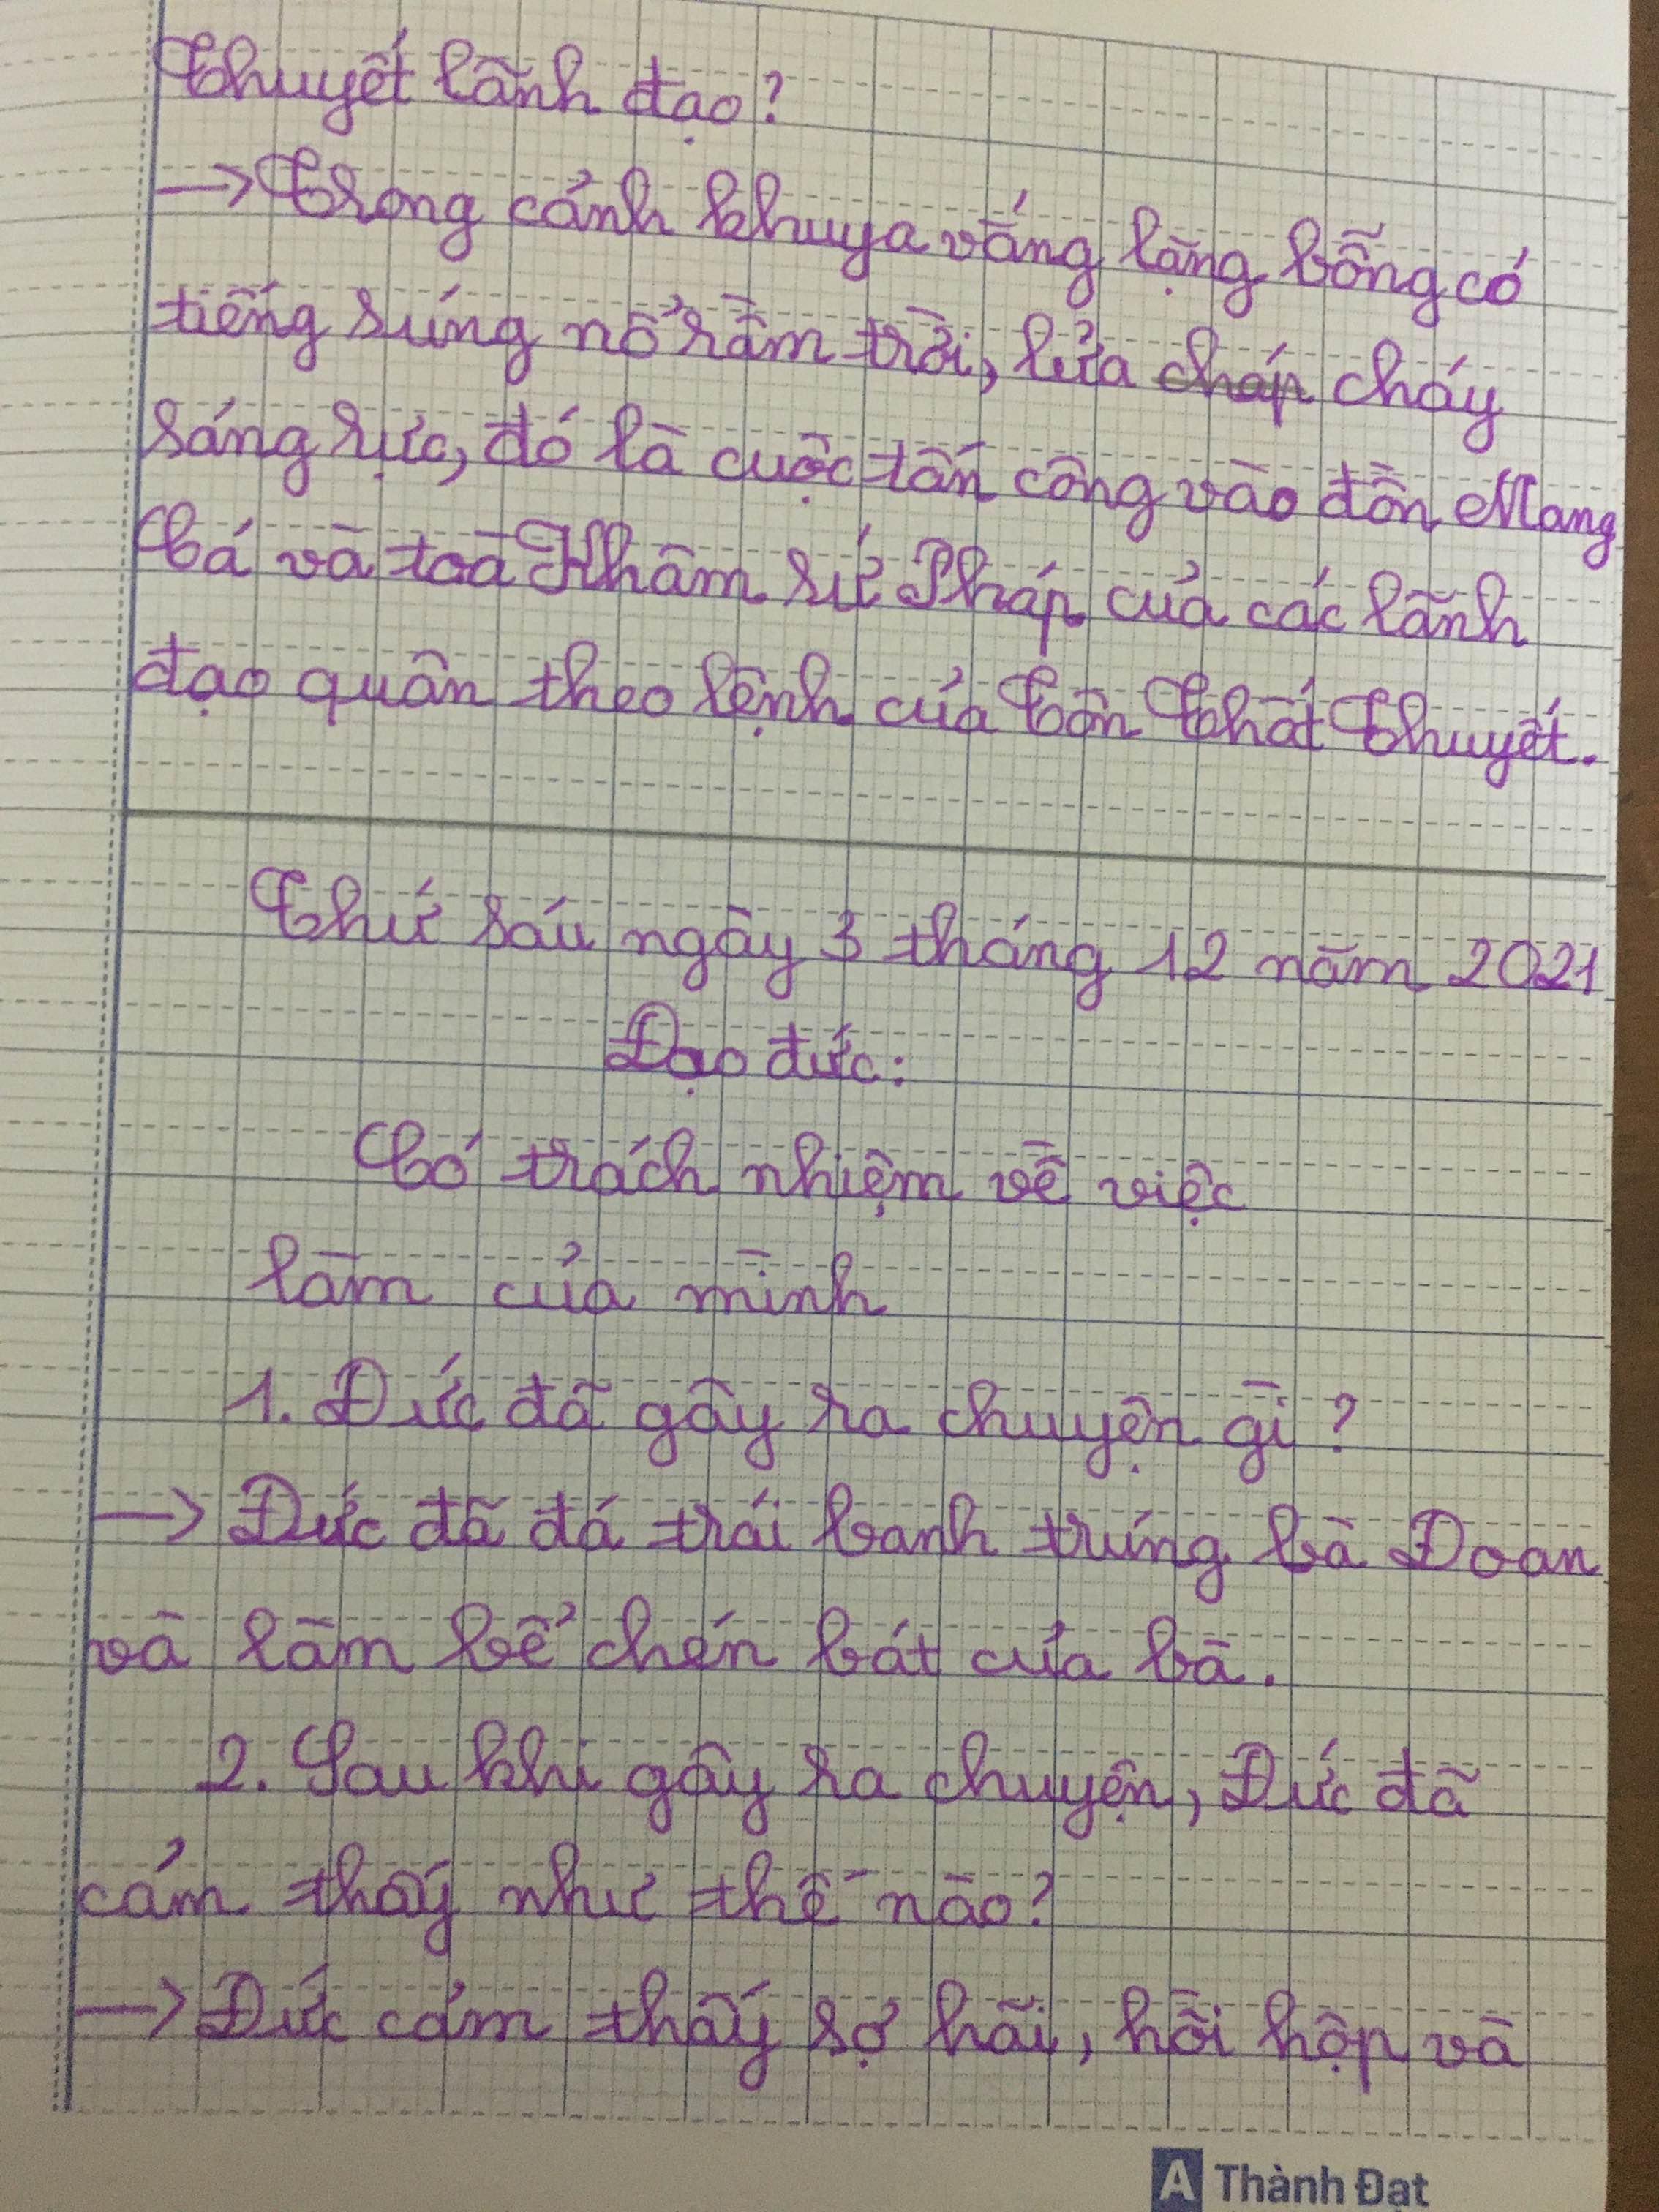 Thuyết lãnh đạo?
→ Trong cảnh khuya vắng lặng bỗng có
tiếng súng nổ rầm trời, lửa cháp cháy
sáng rực, đó là cuộc tấn công vào đồn Mang
Cá và toà Khâm sứ Pháp của các lãnh
đạo quân theo lệnh của Tôn Thất Thuyết.
Thứ sáu ngày 3 tháng 12 năm 2021
Đạo đức:
Có trách nhiệm về việc
làm của mình
1. Đức đã gây ra chuyện gì?
→ Đức đã đá trái banh trúng bà Doan
và làm bể chén bát của bà.
2. Sau khi gây ra chuyện, Đức đã
cảm thấy như thế nào?
→ Đức cảm thấy sợ hãi, hồi hộp và
A Thành Đạt